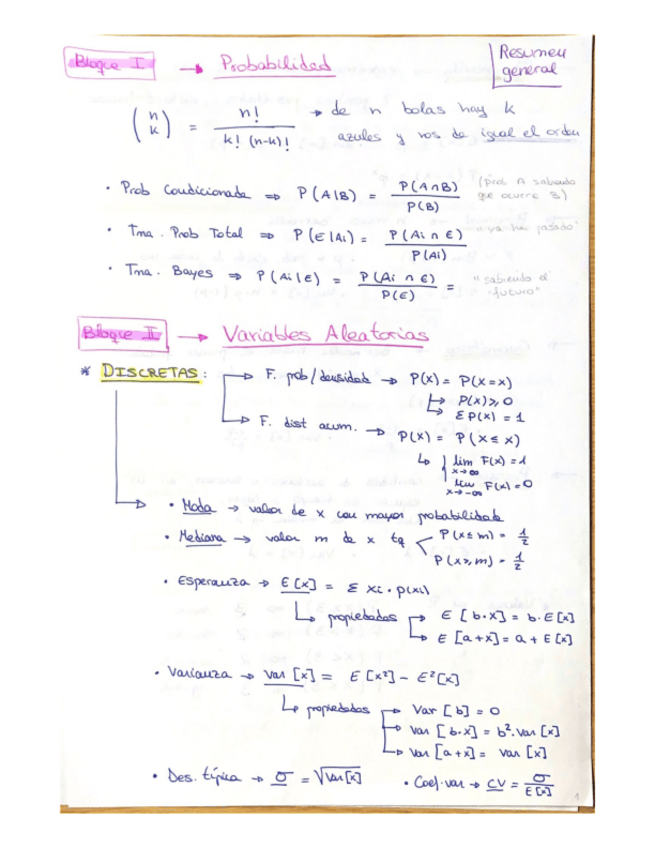 Bloque I → Probabilidad
Resumen general
(n k) = n! / k! (n-k)! → de n bolas hay k
azules y nos da igual el orden
• Prob Condicionada ⇒ P(A|B) = P(A∩B) / P(B) (prob A sabiendo que ocurre B)
• Tma. Prob Total ⇒ P(E|Ai) = P(Ai ∩ E) / P(Ai) ya ha pasado
• Tma. Bayes ⇒ P(Ai|E) = P(Ai ∩ E) / P(E) = "sabiendo el futuro"
Bloque II → Variables Aleatorias
* DISCRETAS: → F. prob/densidad → P(x) = P(X=x)
↳ P(x) ≥ 0
↳ Σ P(x) = 1
→ F. dist acum. → P(x) = P(X ≤ x)
↳ lim x→∞ F(x) = 1
lim x→-∞ F(x) = 0
• Moda → valor de x con mayor probabilidad
• Mediana → valor m de x tq P(x ≤ m) = 1/2
P(x ≥ m) = 1/2
• Esperanza → E[x] = Σ xi · p(xi)
↳ propiedades → E[b·x] = b·E[x]
↳ E[a+x] = a + E[x]
• Varianza → Var[x] = E[x²] - E²[x]
↳ propiedades → Var[b] = 0
→ Var[b·x] = b²·Var[x]
→ Var[a+x] = Var[x]
• Des. típica → σ = √Var[x] • Coef. var → CV = σ / E[x]
1